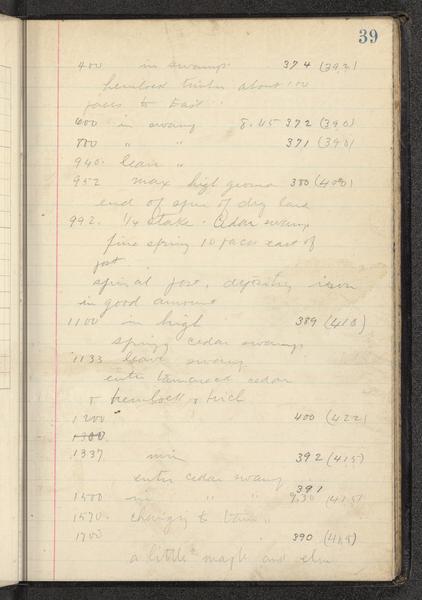 39
400 in swamp 374 (392)
hemlock timber about 100
paces to East
600 in swamp 8.45 372 (390)
800 " " 371 (390)
940 leave "
952 max high ground 380 (400)
end of spur of dry land
992. 1/4 stake. Cedar swamp
fine spring 10 paces east of
post
spring at post, depositing iron
in good amount
1100 in high 389 (410)
springy cedar swamp
1133 leave swamp
enter tamarack cedar
& hemlock & birch
1200 400 (422)
1300
1337 min 392 (415)
enter cedar swamp
391
1500 in " " 9.30 (415)
1570 changing to tam "
1700 390 (415)
a little maple and elm